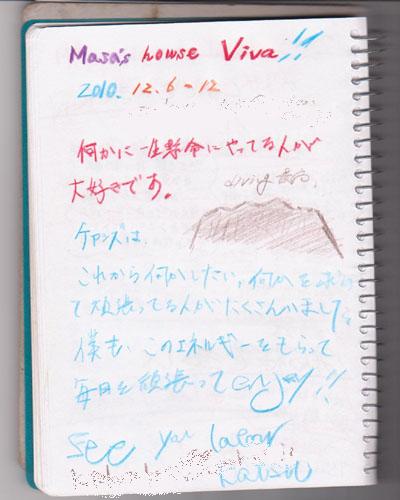 Masa's howse Viva!!
2010. 12. 6 - 12
何かに一生懸命にやってる人が
大好きです。
diving
ケアンズは、
これから何かしたい、何かを求め
て頑張ってる人がたくさんいました
僕も、このエネルギーをもらって
毎日を頑張ってenjoy!!
See you later